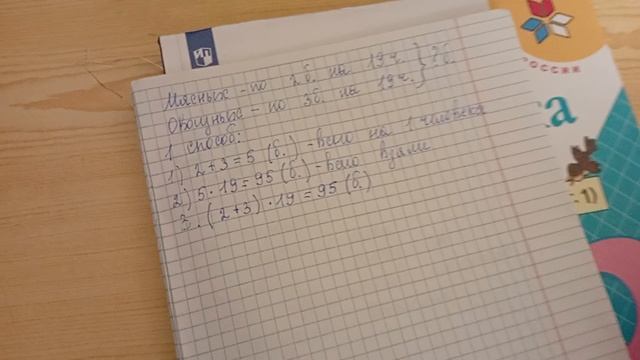 Мясных - по 2б. на 19ч. } ?б.
Овощных - по 3б. на 19ч.
1 способ:
1) 2+3=5 (б.) - всего на 1 человека
2) 5·19=95 (б.) - всего взяли
3. (2+3)·19=95 (б.)
РОССИИ
ка
.1)